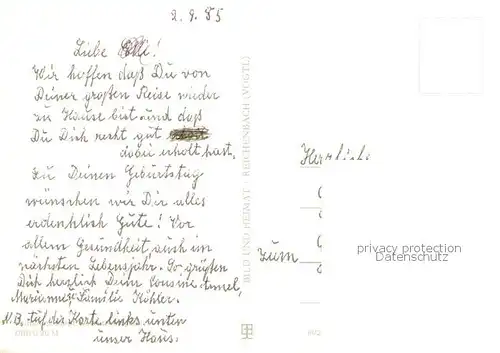 2.9.85
Liebe Elli!
Wir hoffen daß Du von
Deiner großen Reise wieder
zu Hause bist und daß
Du Dich recht gut
dabei erholt hast.
Zu Deinen Geburtstag
wünschen wir Dir alles
erdenklich Gute! Vor
allem Gesundheit auch im
nächsten Lebensjahr. Es grüßen
Dich herzlich Deine Cousine
Marianne Familie Köhler.
N.B. Auf der Karte links unten
unser Haus.
BILD UND HEIMAT REICHENBACH (VOGTL)
Herzliche
zum
privacy protection
Datenschutz